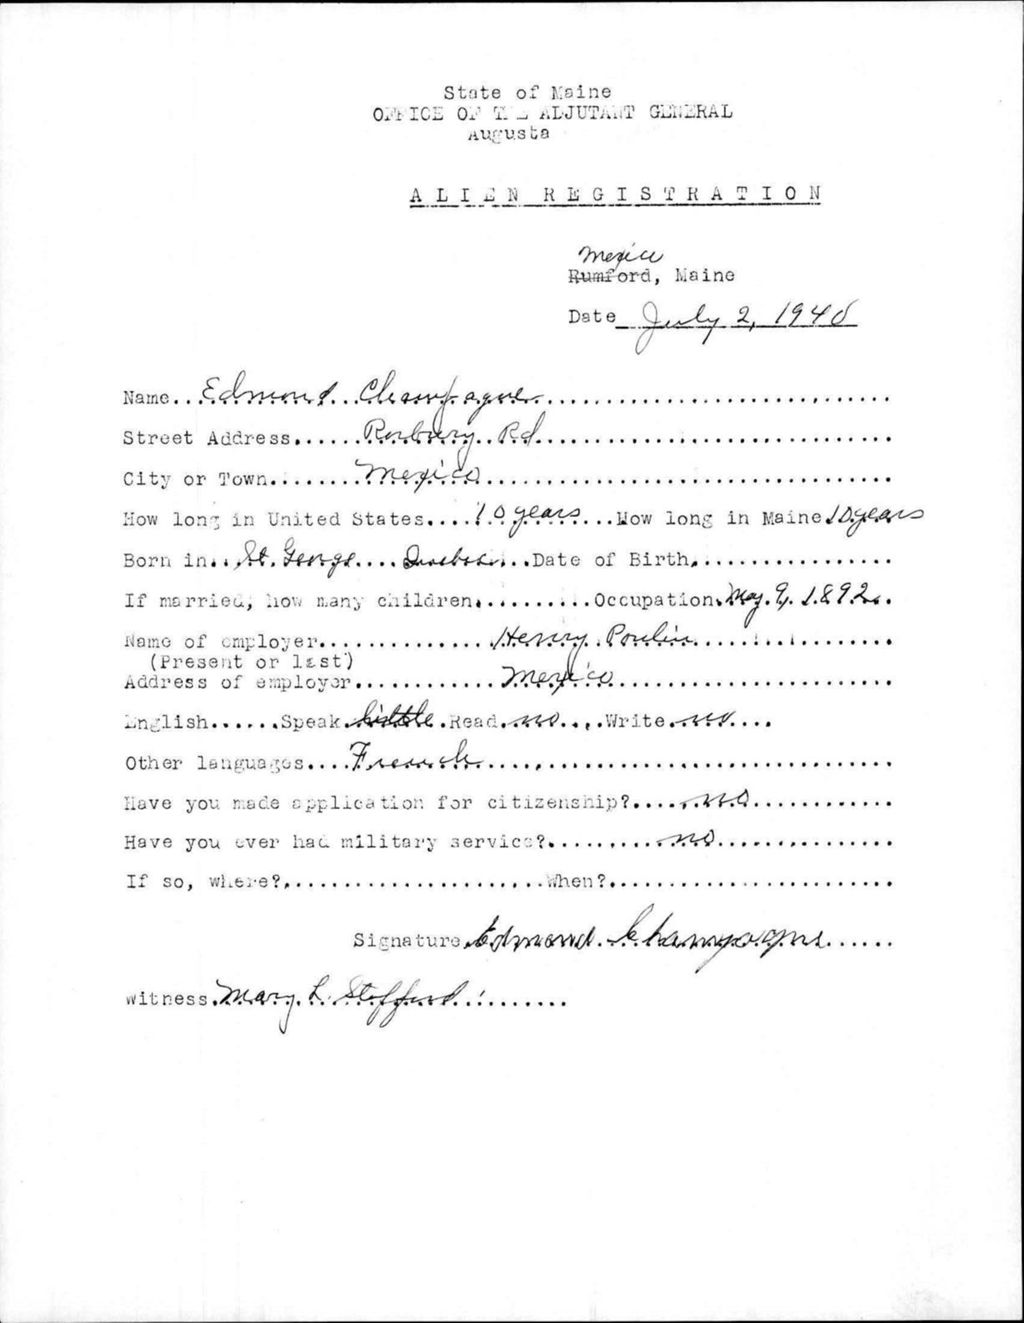 State of Maine
OFFICE OF THE ADJUTANT GENERAL
Augusta
ALIEN REGISTRATION
Mexico
Rumford, Maine
Date July 2, 1940
Name...Edmond Champagne
Street Address......Roxbury Rd
City or Town........Mexico
How long in United States....10 years...How long in Maine 10 years
Born in..St. George....Quebec...Date of Birth
If married, how many children..........Occupation.May. 9, 1892
Name of employer..............Henry Poulin
(Present or last)
Address of employer............Mexico
English......Speak.little.Read.no....Write.no....
Other languages....French
Have you made application for citizenship?.....no
Have you ever had military service?..........no
If so, where?......................When?
Signature.Edmond Champagne
Witness.Mary L. Stafford